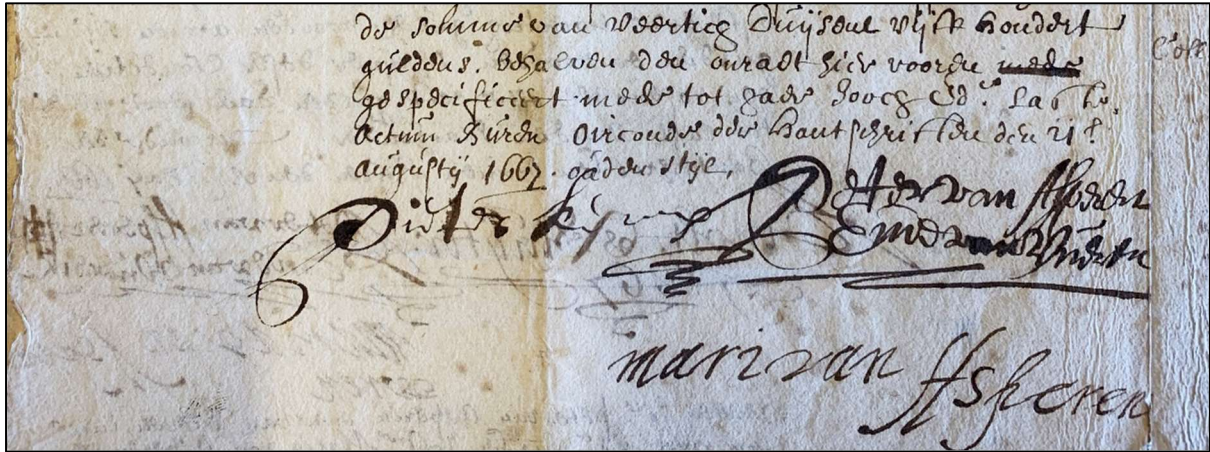 de somme van Veertich Duijsent Vijff hondert
guldens. behalven den onraet hier vooren mede
gespecificeert mede tot haer hooch Ed.e laste.
Actum Buren Oirconde der Hantschriften den 21
Augustij 1667. ouden stijl.
Pieter
Peter van Asperen
End van Vueren
mari van Asperen